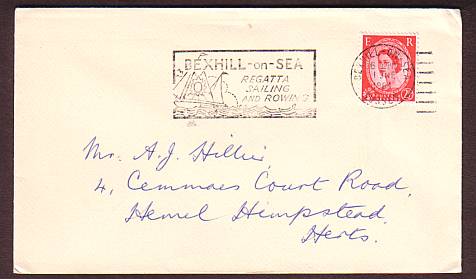 BEXHILL-on-SEA
REGATTA
SAILING
AND ROWING
E R
Mr. A.J. Hillier,
4, Cemmaes Court Road,
Hemel Hempstead,
Herts.